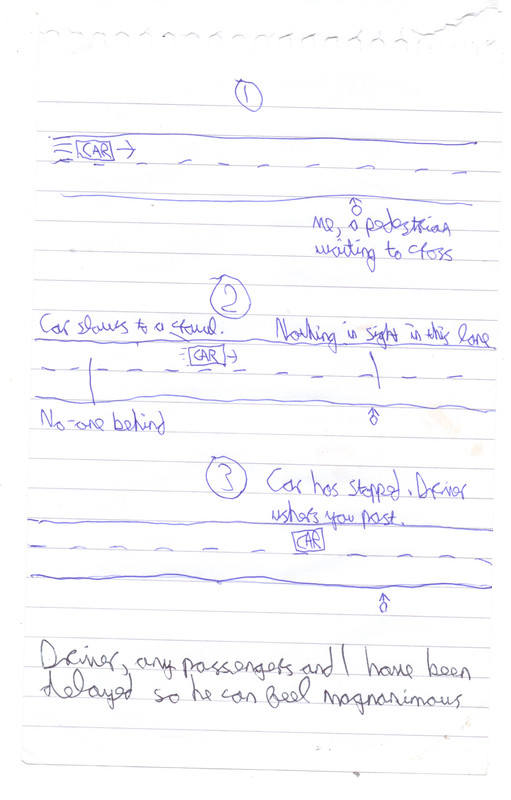 1
CAR
me, a pedestrian
waiting to cross
2
Car slows to a crawl.
Nothing in sight in this lane
CAR
No-one behind
3
Car has stopped. Driver
ushers you past.
CAR
Driver, any passengers and I have been
delayed so he can feel magnanimous